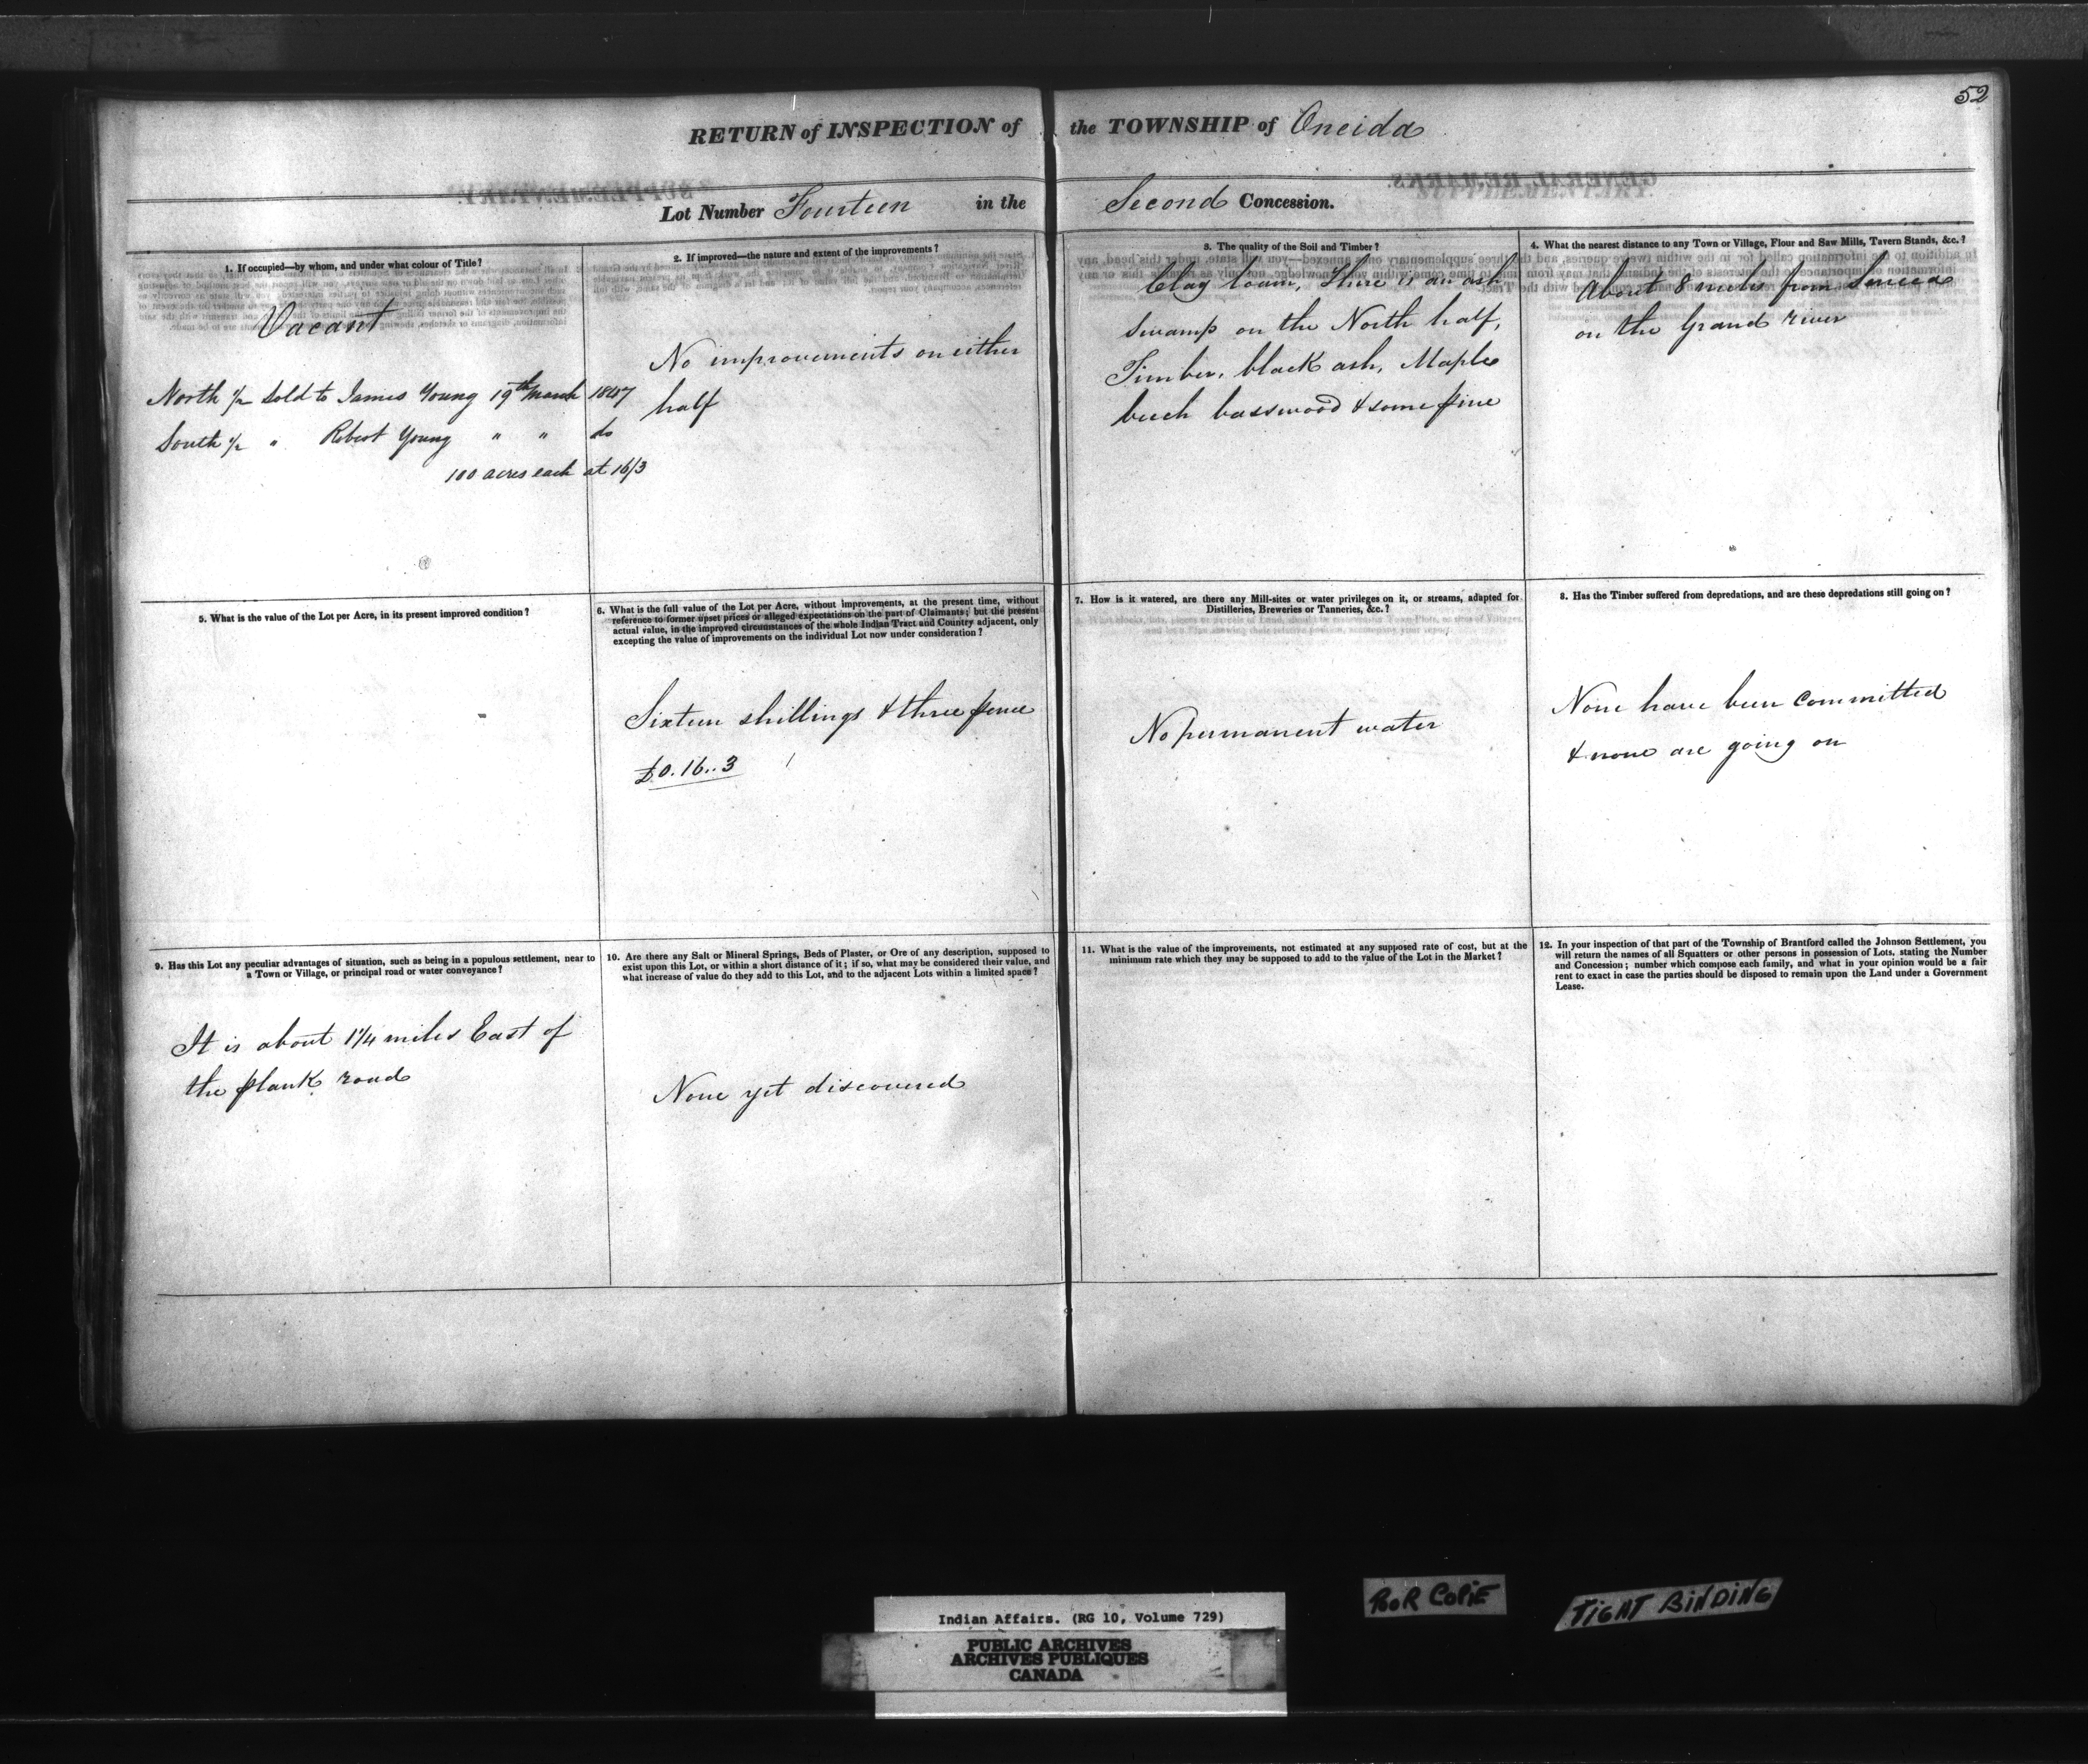 52
RETURN of INSPECTION of the TOWNSHIP of Oneida
Lot Number Fourteen in the Second Concession.
1. If occupied—by whom, and under what colour of Title?
Vacant
North 1/2 Sold to James Young 19th March 1847
South 1/2 " Robert Young " " do
100 acres each at 16/3
2. If improved—the nature and extent of the improvements?
No improvements on either
half
3. The quality of the Soil and Timber?
Clay loam, There is an ash
swamp on the North half,
Timber, black ash, Maple
beech basswood & some pine
4. What the nearest distance to any Town or Village, Flour and Saw Mills, Tavern Stands, &c.?
About 8 miles from Seneca
on the Grand river
5. What is the value of the Lot per Acre, in its present improved condition?
6. What is the full value of the Lot per Acre, without improvements, at the present time, without
reference to former upset prices or alleged expectations on the part of Claimants; but the present
actual value, in the improved circumstances of the whole Indian Tract and Country adjacent, only
excepting the value of improvements on the individual Lot now under consideration?
Sixteen shillings & three pence
£0.16..3
7. How is it watered, are there any Mill-sites or water privileges on it, or streams, adapted for
Distilleries, Breweries or Tanneries, &c.?
No permanent water
8. Has the Timber suffered from depredations, and are these depredations still going on?
None have been Committed
& none are going on
9. Has this Lot any peculiar advantages of situation, such as being in a populous settlement, near to
a Town or Village, or principal road or water conveyance?
It is about 1 1/4 miles East of
the plank road
10. Are there any Salt or Mineral Springs, Beds of Plaster, or Ore of any description, supposed to
exist upon this Lot, or within a short distance of it; if so, what may be considered their value, and
what increase of value do they add to this Lot, and to the adjacent Lots within a limited space?
None yet discovered
11. What is the value of the improvements, not estimated at any supposed rate of cost, but at the
minimum rate which they may be supposed to add to the value of the Lot in the Market?
12. In your inspection of that part of the Township of Brantford called the Johnson Settlement, you
will return the names of all Squatters or other persons in possession of Lots, stating the Number
and Concession; number which compose each family, and what in your opinion would be a fair
rent to exact in case the parties should be disposed to remain upon the Land under a Government
Lease.
POOR COPIE
TIGHT BINDING
Indian Affairs. (RG 10, Volume 729)
PUBLIC ARCHIVES
ARCHIVES PUBLIQUES
CANADA